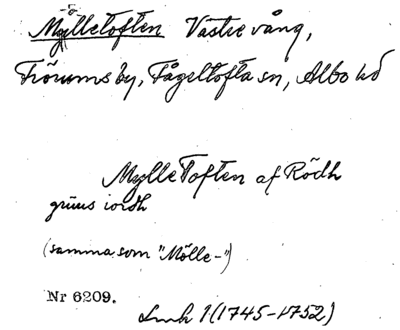 Mylletoften Västre vång,
by, Fågeltofta sn, Albo hd
Mylletoften af Rödh
gruus iordh
(samma som "Mölle-")
Nr 6209.
Lmk 1 (1745-1752)